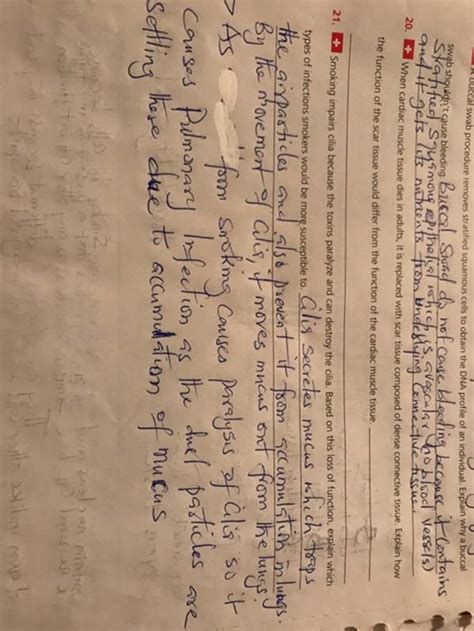 buccal swab procedure removes stratified squamous cells to obtain the DNA profile of an individual. Explain why a buccal
swab shouldn't cause bleeding. Buccal Swad do not cause bleeding because it contains
Stratified Squamous epithelial which is avascular (no blood vessels)
and it gets its nutrients from underlying connective tissue.
20. When cardiac muscle tissue dies in adults, it is replaced with scar tissue composed of dense connective tissue. Explain how
the function of the scar tissue would differ from the function of the cardiac muscle tissue.
21. Smoking impairs cilia because the toxins paralyze and can destroy the cilia. Based on this loss of function, explain which
types of infections smokers would be more susceptible to. Cilia secretes mucus which traps
the airparticles and also prevent it from accumulation in lungs.
By the movement of Cilia, it moves mucus out from the lungs.
> As from smoking causes paralysis of Cilia so it
causes Pulmonary Infection as the dust particles are
settling there due to accumulation of mucus